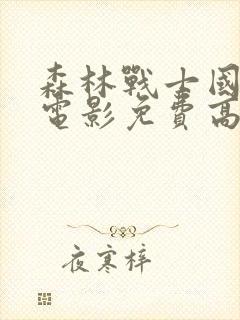 森林戰士國
電影免費高
夜寒梓